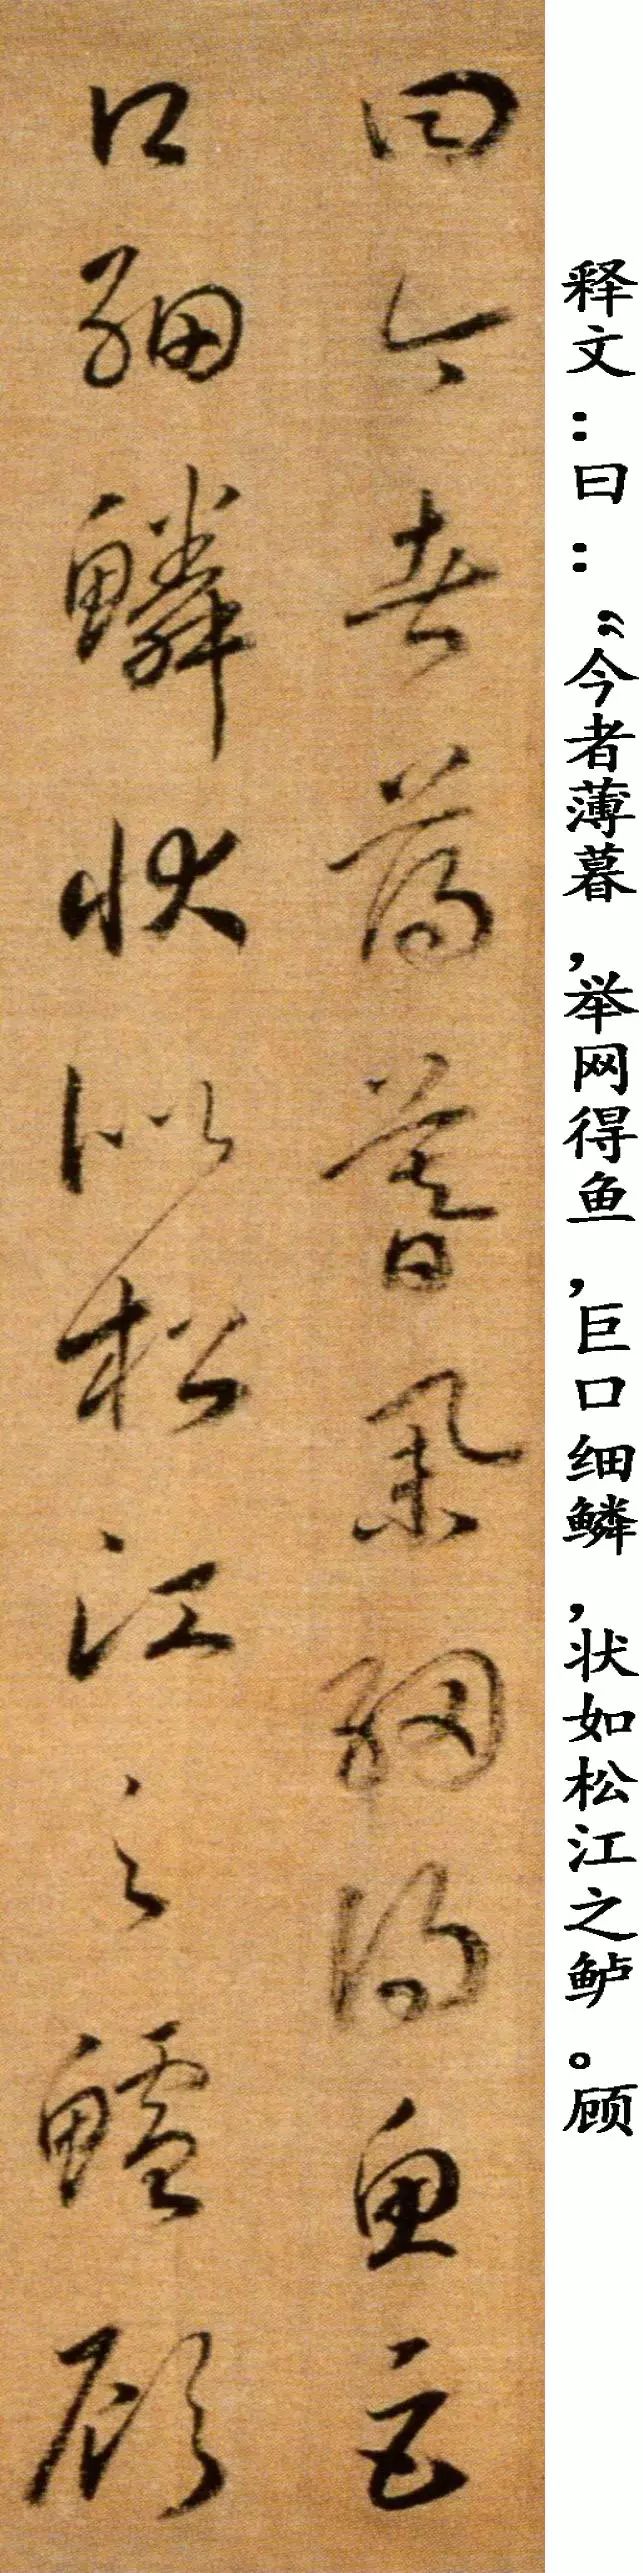 释文：曰：“今者薄暮，举网得鱼，巨口细鳞，状如松江之鲈。顾
曰今者薄暮舉網得魚巨
口細鱗狀似松江之鱸顧